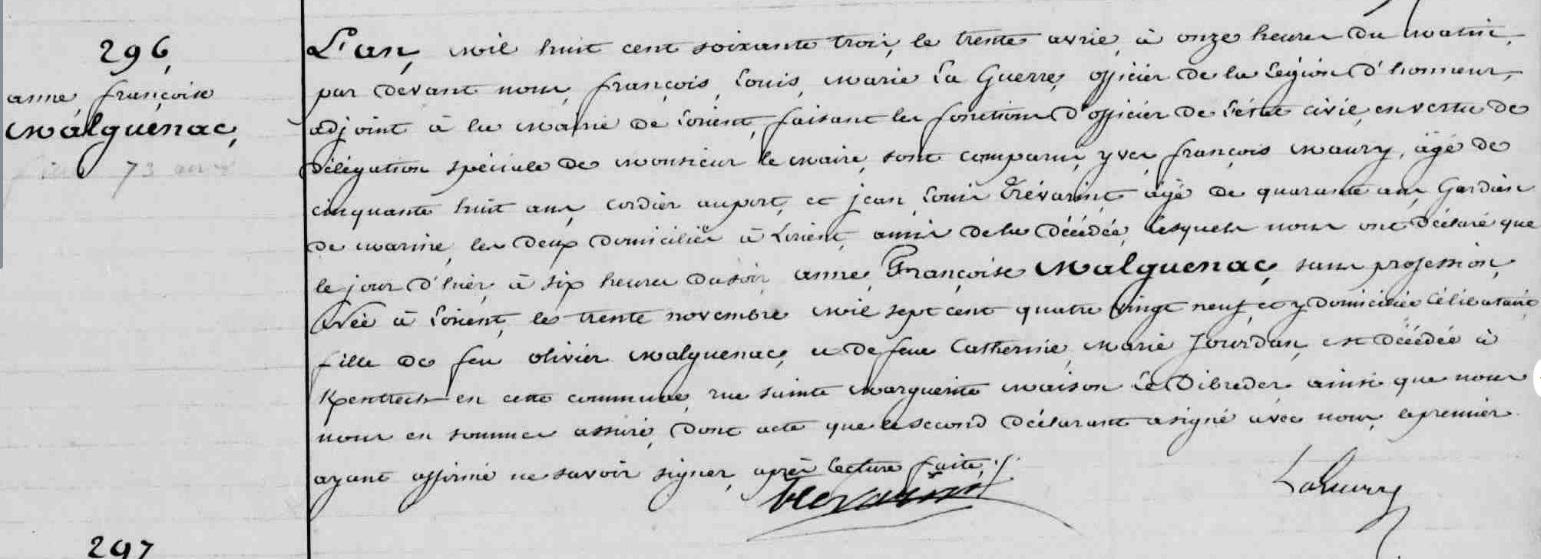 296,
anne, françoise
Malguenac,
fille 73 ans
L'an, mil huit cent soixante trois, le trente avril, à onze heures du matin,
par devant nous, françois, Louis, Marie La Guerre, officier de la Légion d'honneur,
adjoint à la Mairie de Lorient, faisant les fonctions d'officier de l'état civil, en vertu de
délégation spéciale de Monsieur le Maire, sont comparus, yves françois Maury, âgé de
cinquante huit ans, cordier au port, et jean Louis Trévarint âgé de quarante ans, Gardien
de marine, les deux domiciliés à Lorient, amis de la décédée, lesquels nous ont déclaré que
le jour d'hier, à six heures du soir, anne, Françoise Malguenac, sans profession,
Née à Lorient, le trente novembre mil sept cent quatre vingt neuf, et y domiciliée Célibataire
fille de feu olivier Malguenac, et de feue Catherine Marie Jourdan, est décédée à
Kentrech en cette commune, rue sainte Marguerite maison Le Dibreder ainsi que nous
nous en sommes assuré, Dont acte que le second déclarant a signé avec nous, le premier
ayant affirmé ne savoir signer, après lecture faite ./.
trevarint
LaGuerre
297